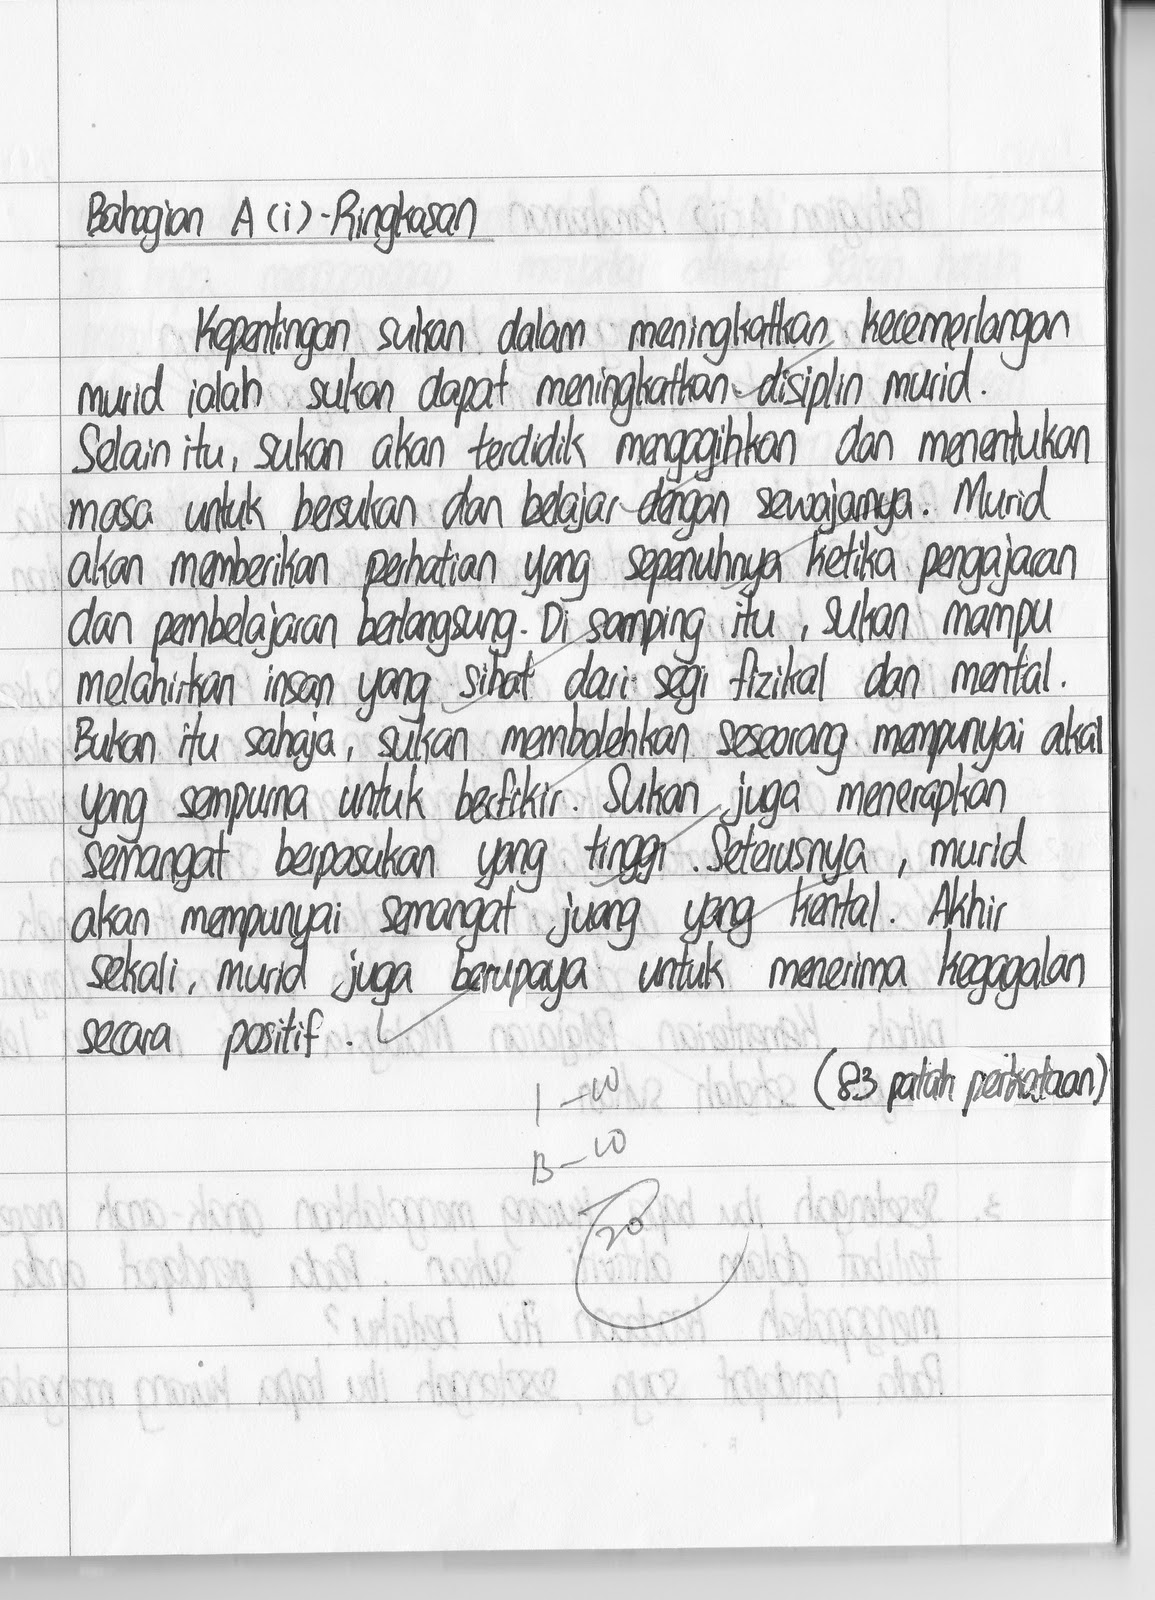 Bahagian A (i) - Ringkasan
Kepentingan sukan dalam meningkatkan kecemerlangan
murid ialah sukan dapat meningkatkan disiplin murid.
Selain itu, sukan akan terdidik mengagihkan dan menentukan
masa untuk bersukan dan belajar dengan sewajarnya. Murid
akan memberikan perhatian yang sepenuhnya ketika pengajaran
dan pembelajaran berlangsung. Di samping itu, sukan mampu
melahirkan insan yang sihat dari segi fizikal dan mental.
Bukan itu sahaja, sukan membolehkan seseorang mempunyai akal
yang sempurna untuk berfikir. Sukan juga menerapkan
semangat berpasukan yang tinggi. Seterusnya, murid
akan mempunyai semangat juang yang kental. Akhir
sekali, murid juga berupaya untuk menerima kegagalan
secara positif.
(83 patah perkataan)
I - 10
B - 10
20